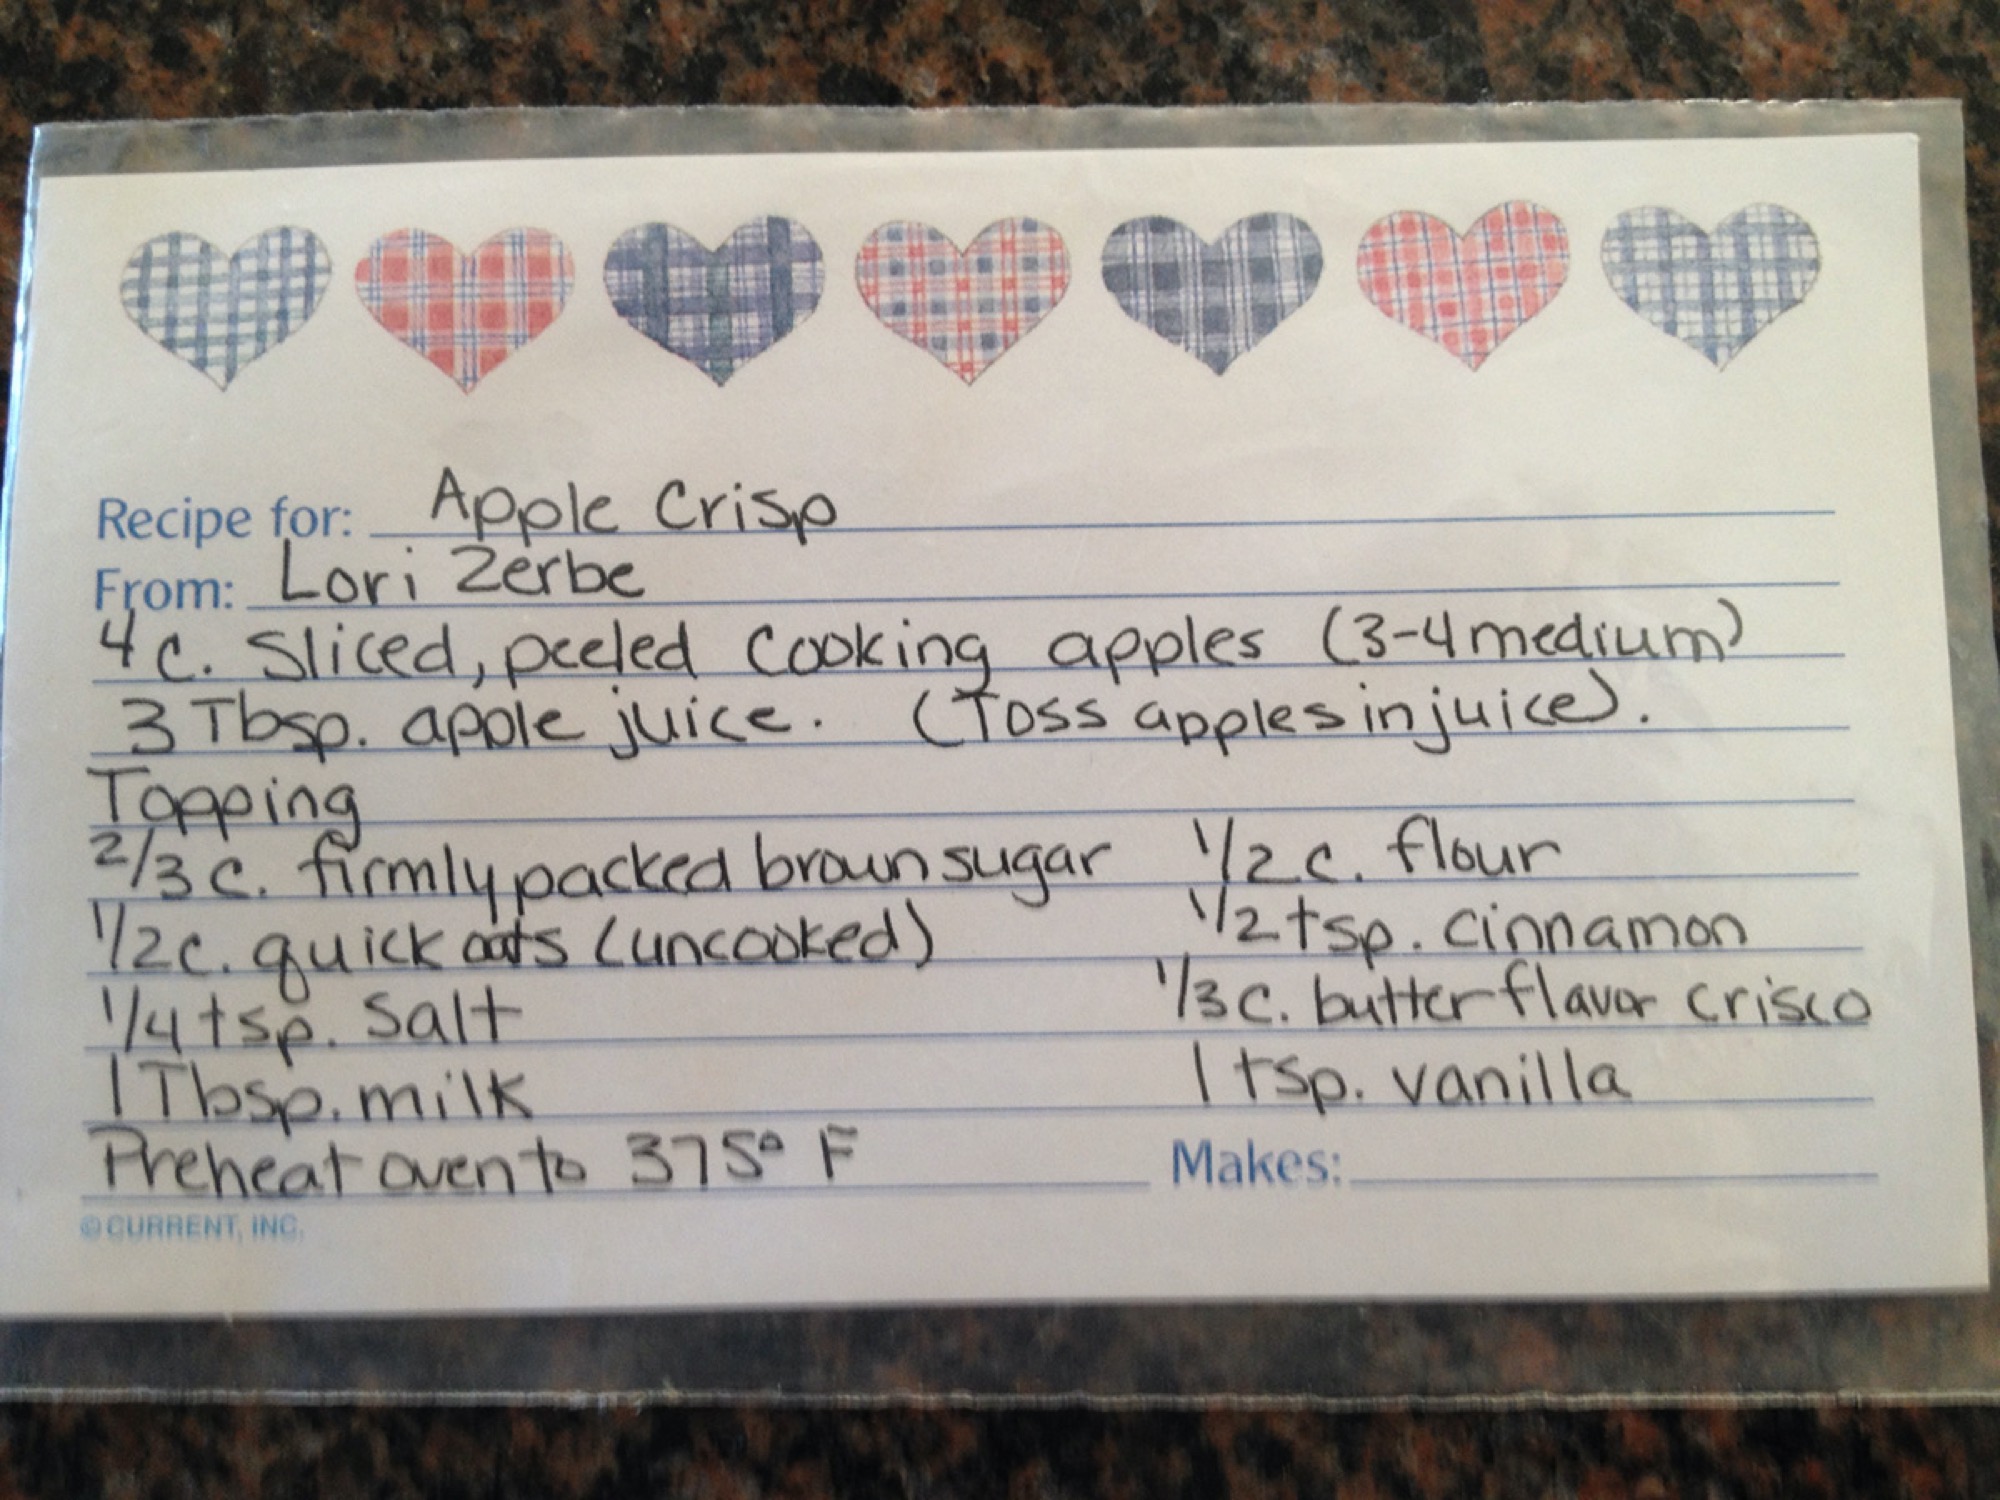 Recipe for: Apple Crisp
From: Lori Zerbe
4 c. sliced, peeled cooking apples (3-4 medium)
3 Tbsp. apple juice. (Toss apples in juice).
Topping
2/3 c. firmly packed brown sugar 1/2 c. flour
1/2 c. quick oats (uncooked) 1/2 tsp. cinnamon
1/4 tsp. salt 1/3 c. butter flavor crisco
1 Tbsp. milk 1 tsp. vanilla
Preheat oven to 375° F Makes:
© CURRENT, INC.